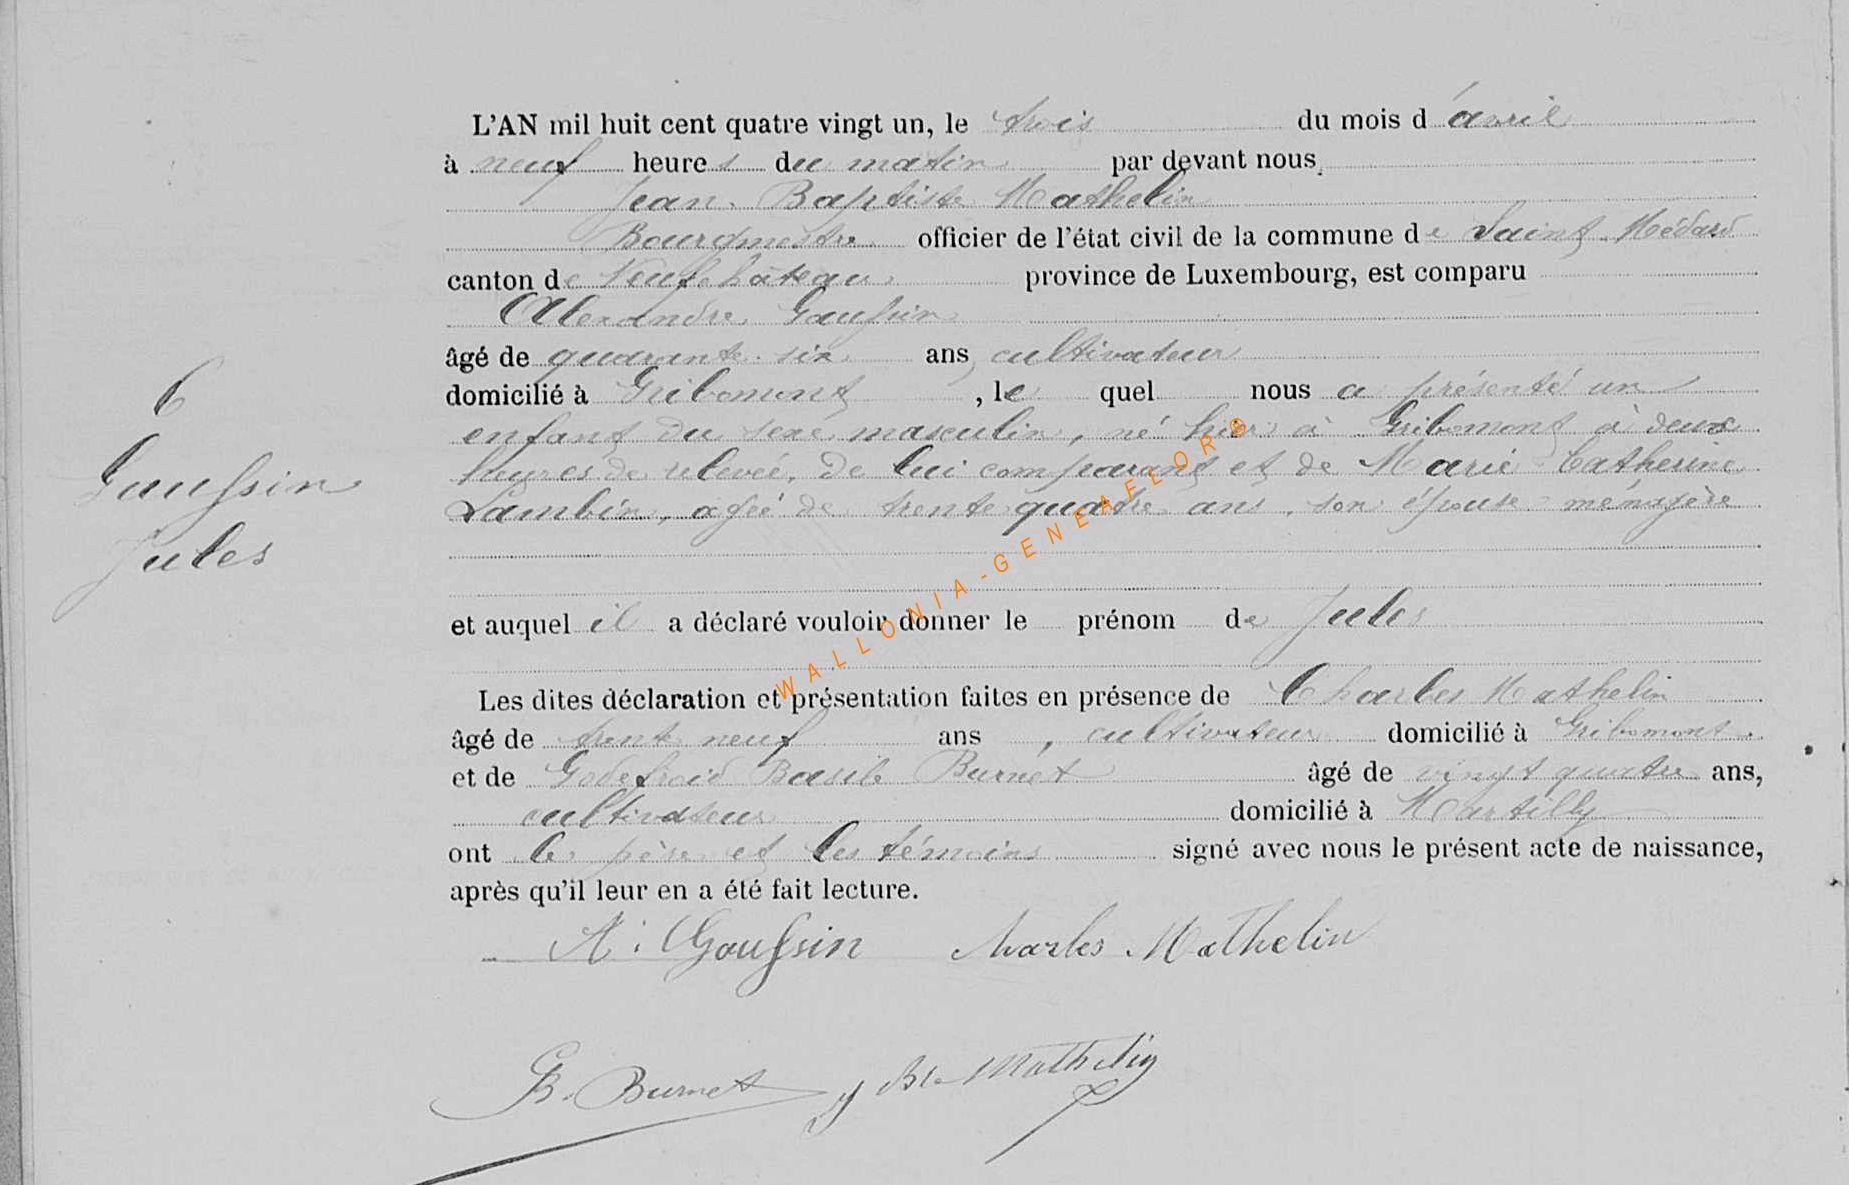 L'AN mil huit cent quatre vingt un, le trois du mois d'avril
à neuf heures du matin par devant nous,
Jean Baptiste Mathelin
Bourgmestre officier de l'état civil de la commune de Saint Médard
canton de Neufchâteau province de Luxembourg, est comparu
Alexandre Gaussin
âgé de quarante six ans, cultivateur
domicilié à Gribomont, le quel nous a présenté un
enfant du sexe masculin, né hier à Gribomont à deux
heures de relevée, de lui comparant et de Marie Catherine
Lambin, agée de trente quatre ans, son épouse ménagère
et auquel il a déclaré vouloir donner le prénom de Jules
Les dites déclaration et présentation faites en présence de Charles Mathelin
âgé de trente neuf ans, cultivateur domicilié à Gribomont.
et de Godefroid Basile Burnet âgé de vingt quatre ans,
cultivateur domicilié à Martilly
ont le père et les témoins signé avec nous le présent acte de naissance,
après qu'il leur en a été fait lecture.
A. Gaussin Charles Mathelin
B. Burnet J Bte Mathelin
6
Gaussin
Jules
WALLONIA-GENEAFLORG